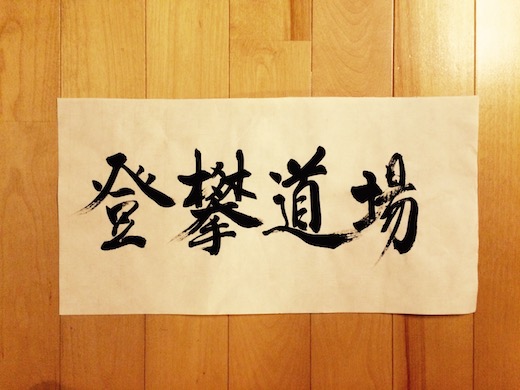 登攀道場